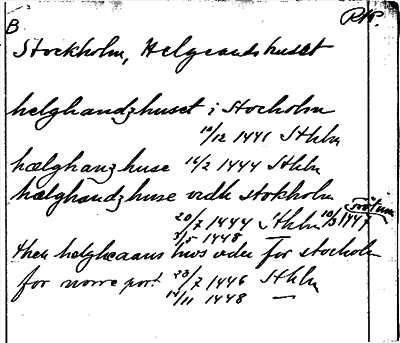 B
Stockholm, Helgeandshuset
helghandzhuset i Stocholm
10/12 1441 Sthlm
hælghanz huse 14/2 1444 Sthlm
hælghandz huse vidh stokholm
20/7 1444 Sthlm 10/3 1447
3/5 1448 —
then helgheaans hws vden for stocholm
for norre port 23/7 1446 Sthlm
14/11 1448 —